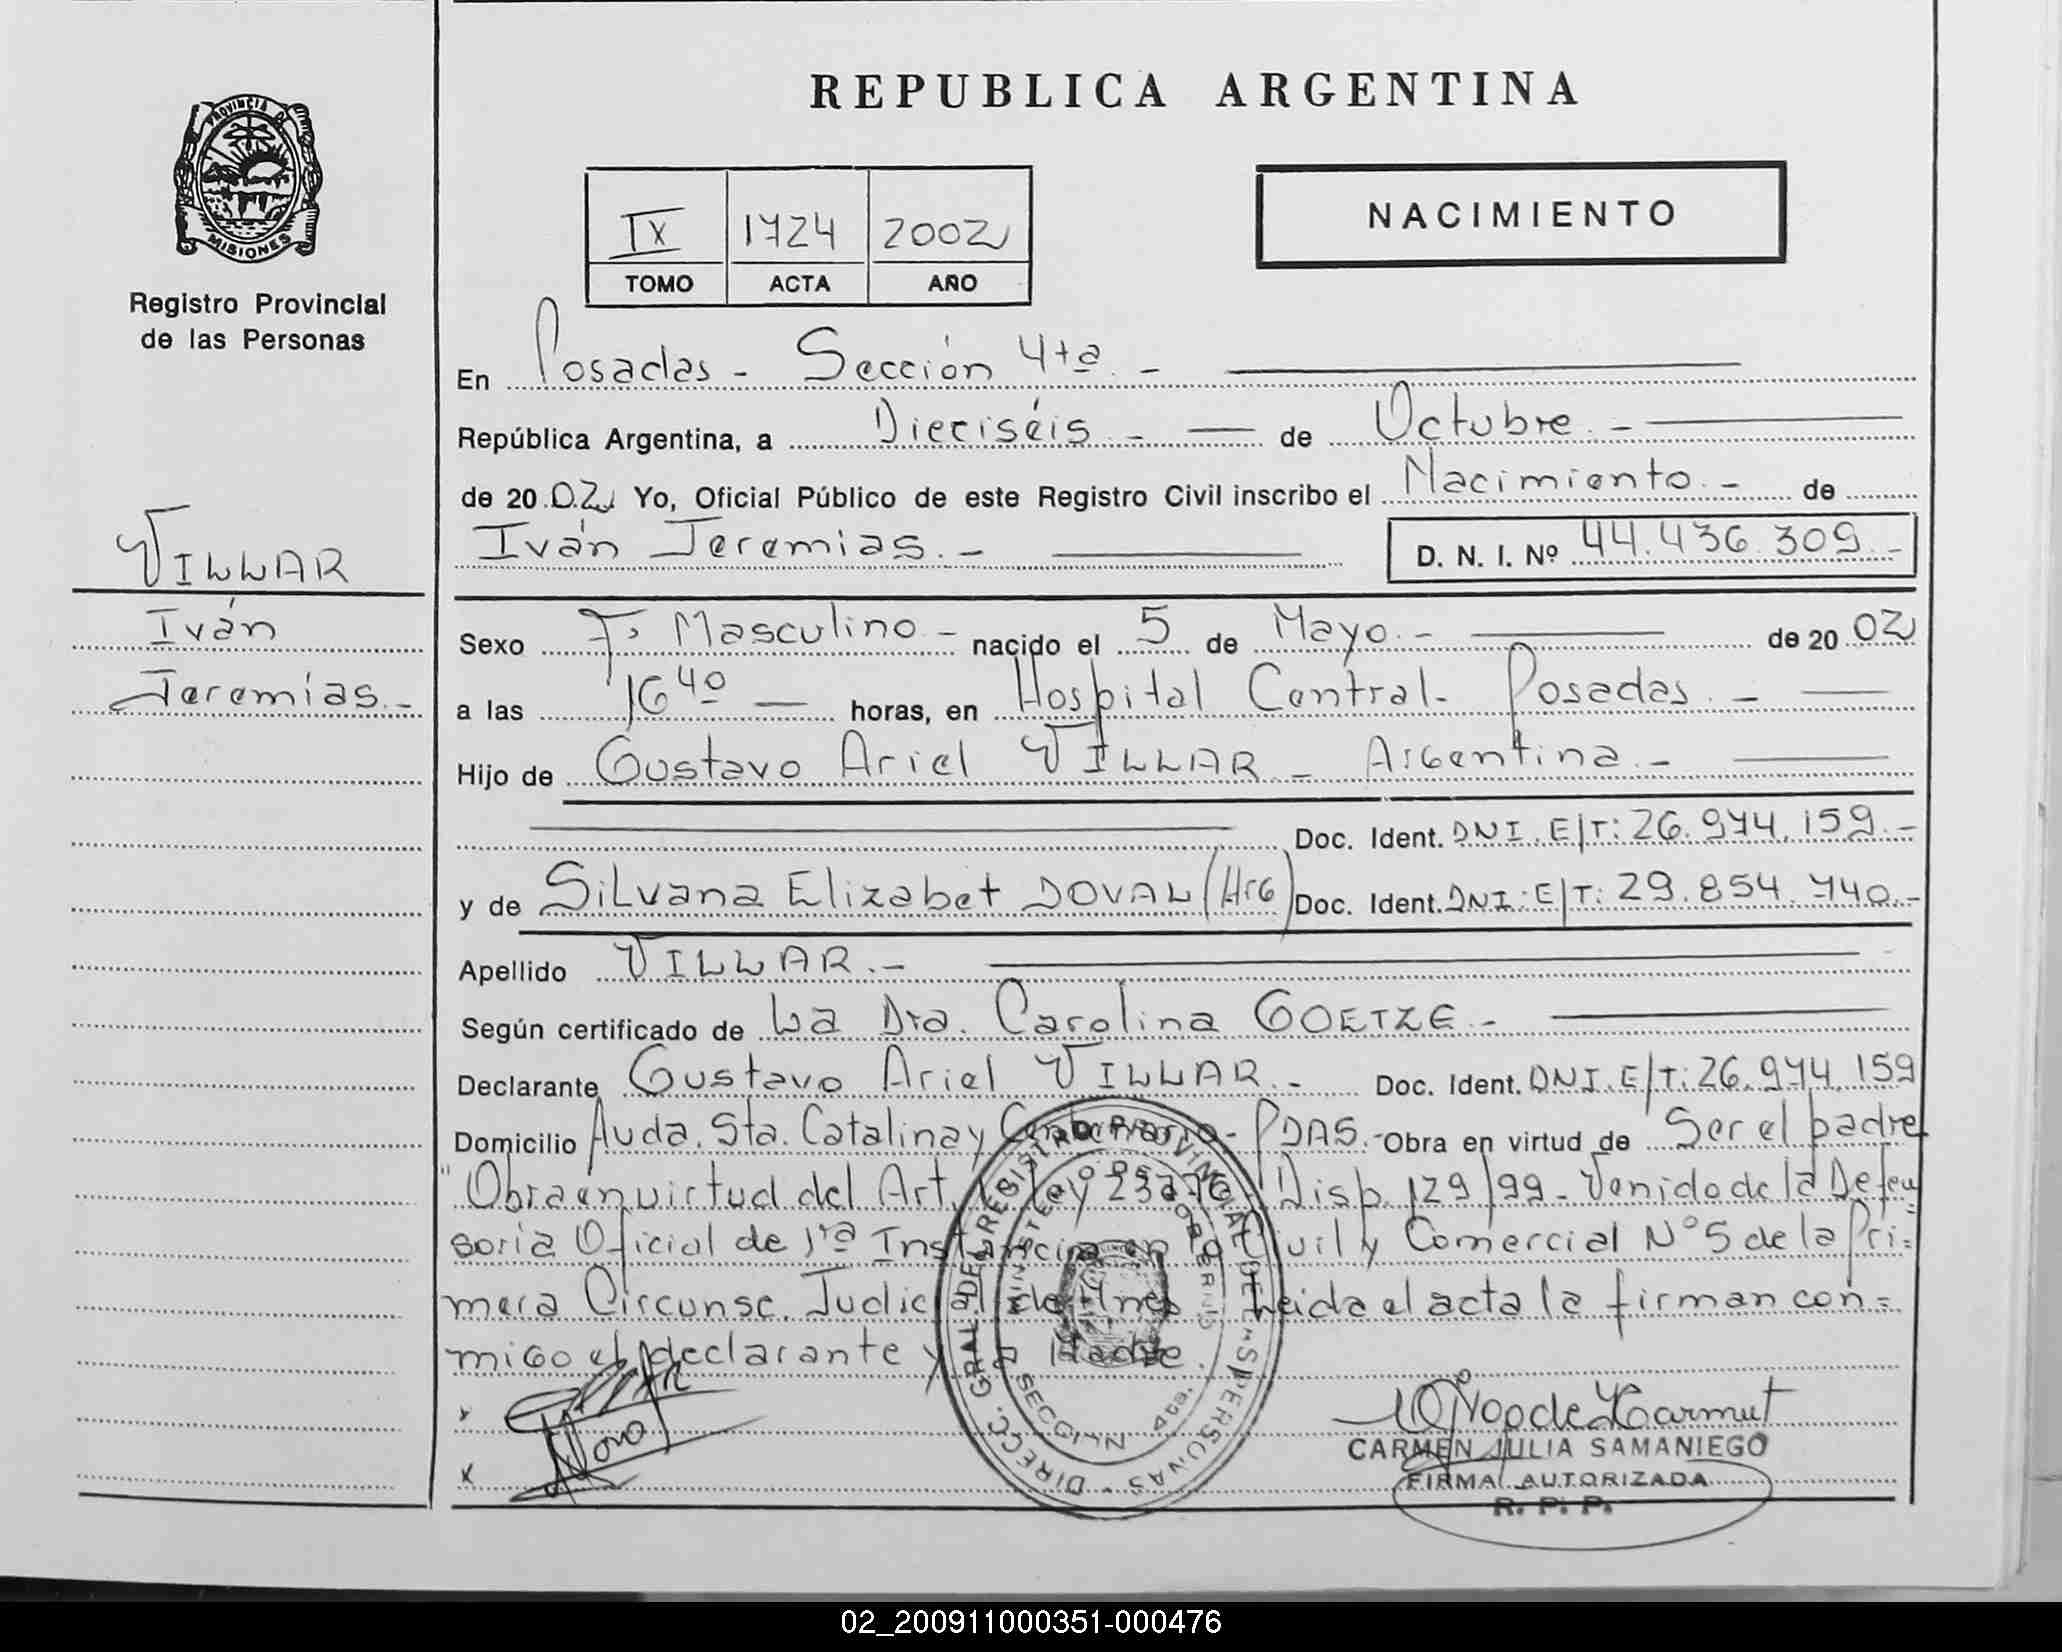 REPUBLICA ARGENTINA
PROVINCIA DE
MISIONES
Registro Provincial
de las Personas
IX 1724 2002
TOMO ACTA AÑO
NACIMIENTO
En Posadas - Sección 4ta. -
República Argentina, a Dieciséis - de Octubre. -
de 20 02 Yo, Oficial Público de este Registro Civil inscribo el Nacimiento. - de
Iván Jeremias. - D. N. I. Nº 44.436.309.-
VILLAR
Iván
Jeremías.-
Sexo Masculino - nacido el 5 de Mayo. - de 20 02
a las 16 40 horas, en Hospital Central - Posadas. -
Hijo de Gustavo Ariel VILLAR - Argentina. -
Doc. Ident. DNI. E/T: 26.974.159.-
y de Silvana Elizabet DOVAL (Arg) Doc. Ident. DNI: E/T: 29.854.740.-
Apellido VILLAR. -
Según certificado de La Dra. Carolina GOETZE. -
Declarante Gustavo Ariel VILLAR. - Doc. Ident. DNI. E/T: 26.974.159
Domicilio Avda. Sta. Catalina y - PDAS. - Obra en virtud de Ser el padre
"Obra en virtud del Art. Disp. 129/99 - Venido de la Defen=
soria Oficial de 1ra Instancia en lo Civil y Comercial Nº 5 de la Pri=
mera Circunsc. Judicial de Mnes Leida el acta la firman con=
migo el declarante y la Madre.
DIRECC. GRAL. DEL REGISTRO PROVINCIAL DE LAS PERSONAS
MINISTERIO DE GOBIERNO
SECCION 4ta.
x
x
CARMEN JULIA SAMANIEGO
FIRMA AUTORIZADA
R. P. P.
02_200911000351-000476